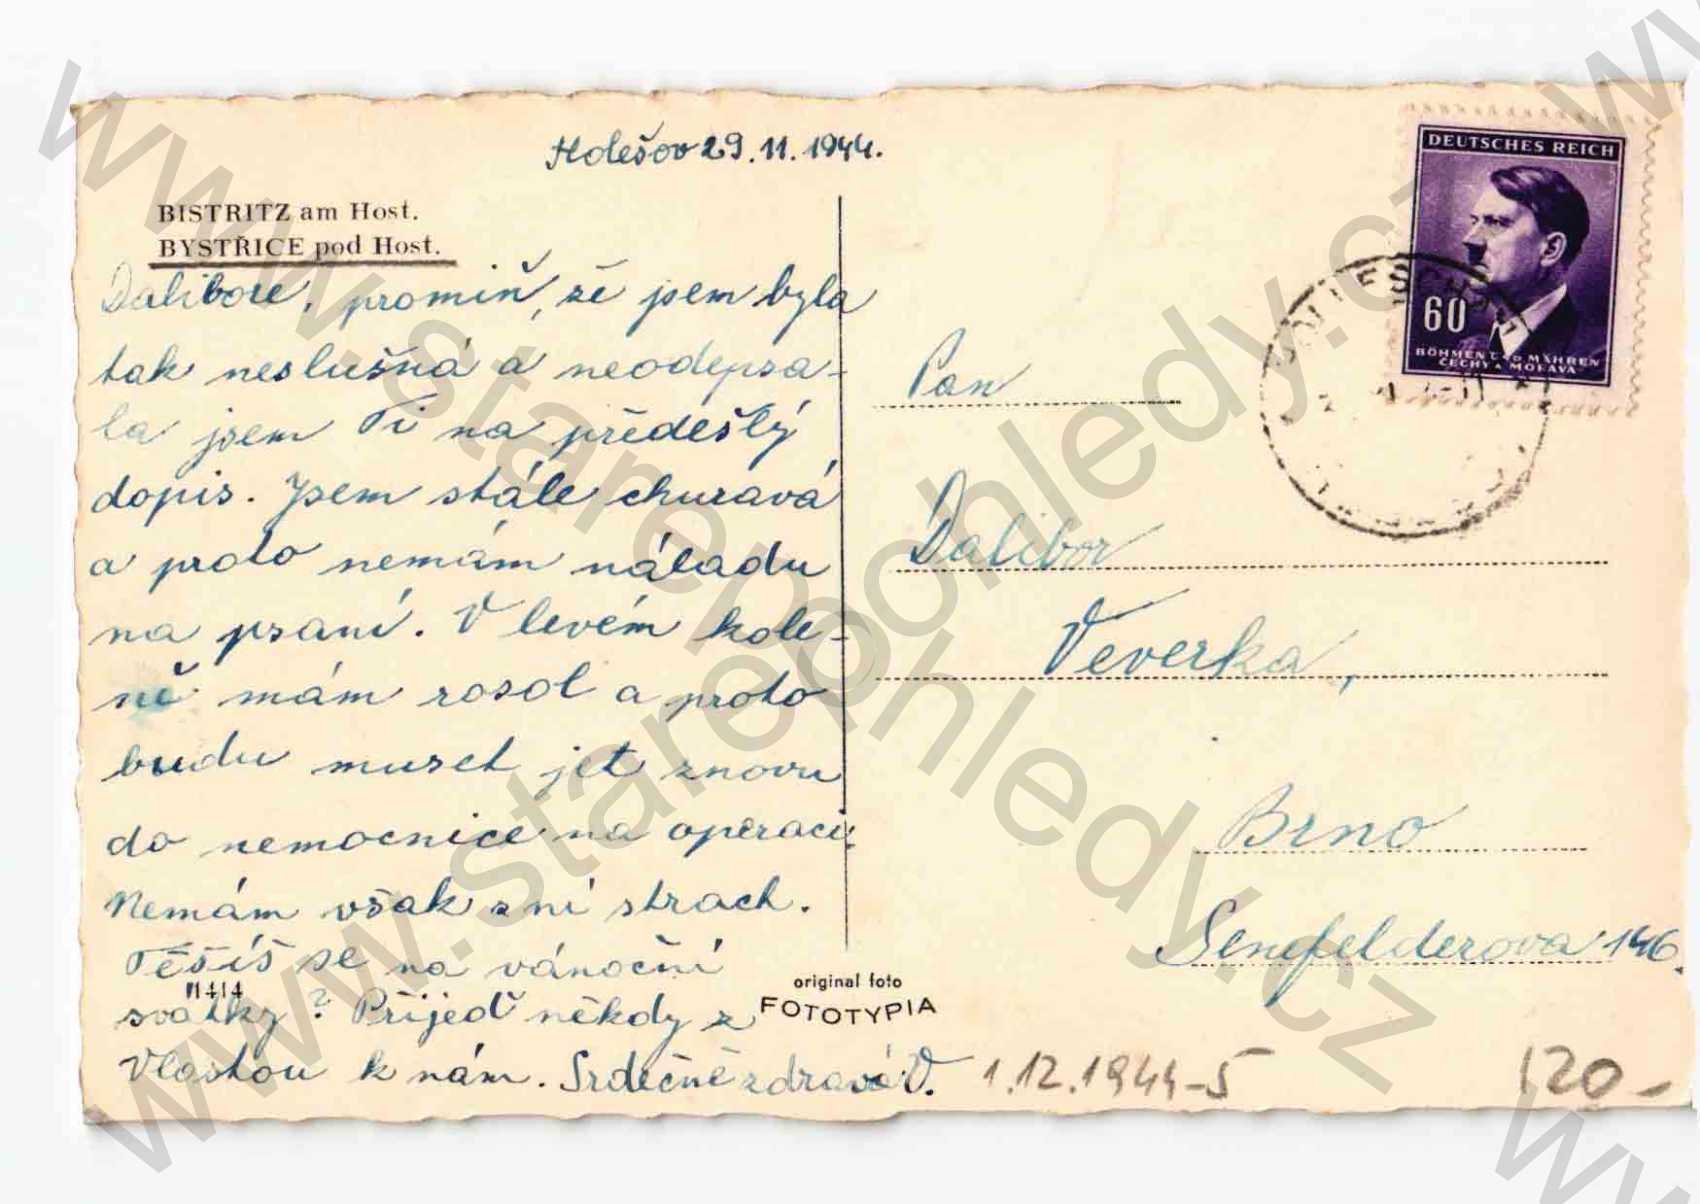 Holešov 29.11.1944.
BISTRITZ am Host.
BYSTŘICE pod Host.
Dalibore, promiň, že jsem byla
tak neslušná a neodepsa-
la jsem Ti na předešlý
dopis. Jsem stále churavá
a proto nemám náladu
na psaní. V levém kole-
ně mám rosol a proto
budu muset jet znovu
do nemocnice na operaci.
Nemám však z ní strach.
Těšíš se na vánoční
svátky? Přijeď někdy z
Vlastou k nám. Srdečně zdraví V.
11414
original foto
FOTOTYPIA
DEUTSCHES REICH
60
BÖHMEN u. MÄHREN
ČECHY a MORAVA
Pan
Dalibor
Veverka,
Brno
Senefelderova 146.
1.12.1944-5
120-
www.starepohledy.cz
www.starepohledy.cz